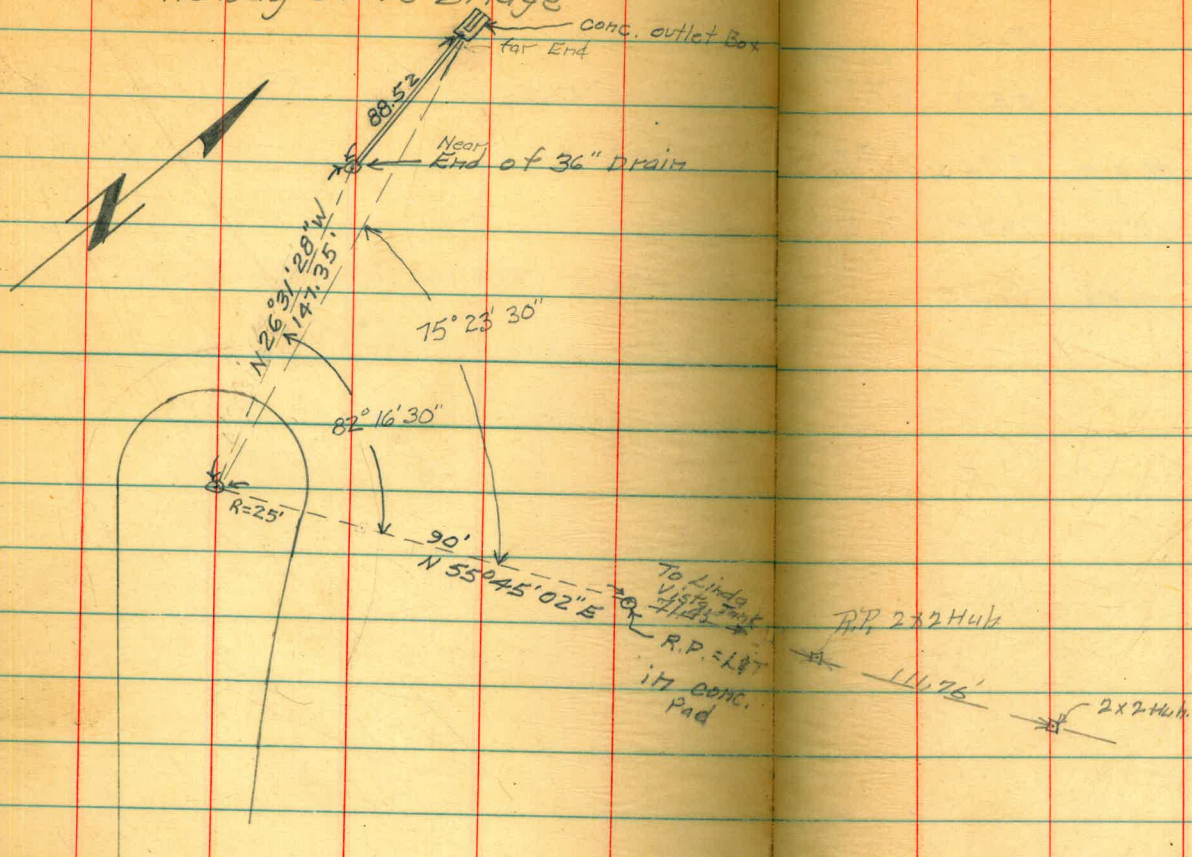 Bridge
conc. outlet Box
far End
88.52
Near
End of 36" Drain
N
N 26°31'28" W
147.35'
75° 23' 30"
82° 16' 30"
R=25'
90'
N 55°45'02" E
To Linda
Vista Tank
R.P. = L&T
in conc.
Pad
R.P. 2x2 Hub
111.76'
2x2 Hub